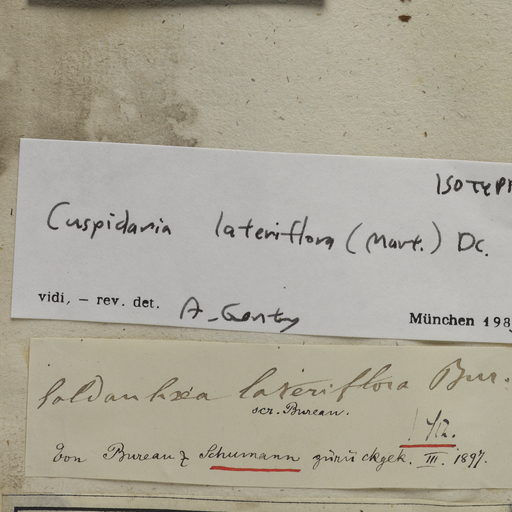 ISOTYP
Cuspidaria lateriflora (Mart.) DC.
vidi, — rev. det. A. Gentry
München 198
Saldanhaea lateriflora Bur.
scr. Bureau.
Von Bureau & Schumann zurückgek. III. 1897.